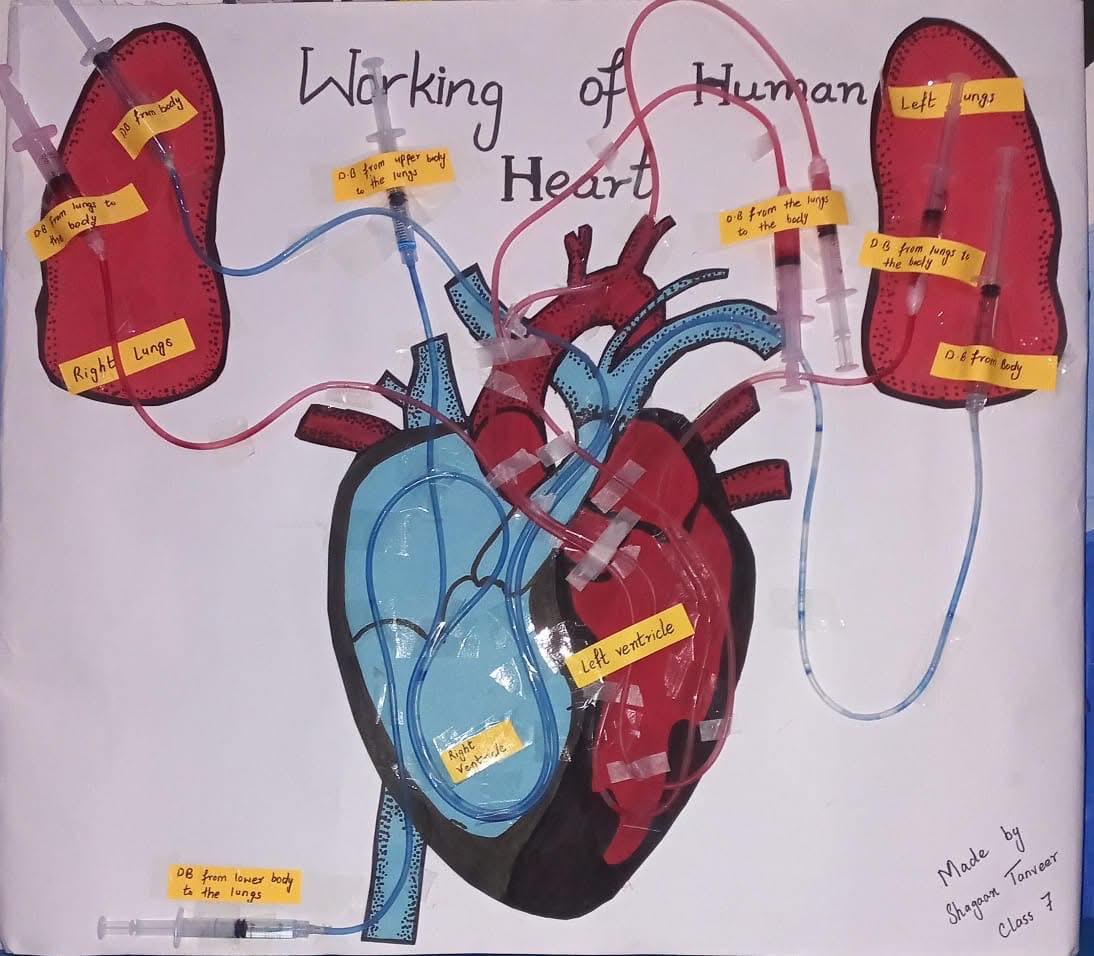 Working of Human
Heart
DB from body
O.B from lungs to
the body
Right Lungs
D.B from upper body
to the lungs
O.B from the lungs
to the body
Left lungs
O.B from lungs to
the body
D.B from Body
Left ventricle
Right
Ventricle
DB from lower body
to the lungs
Made by
Shagaan Tanveer
Class 7